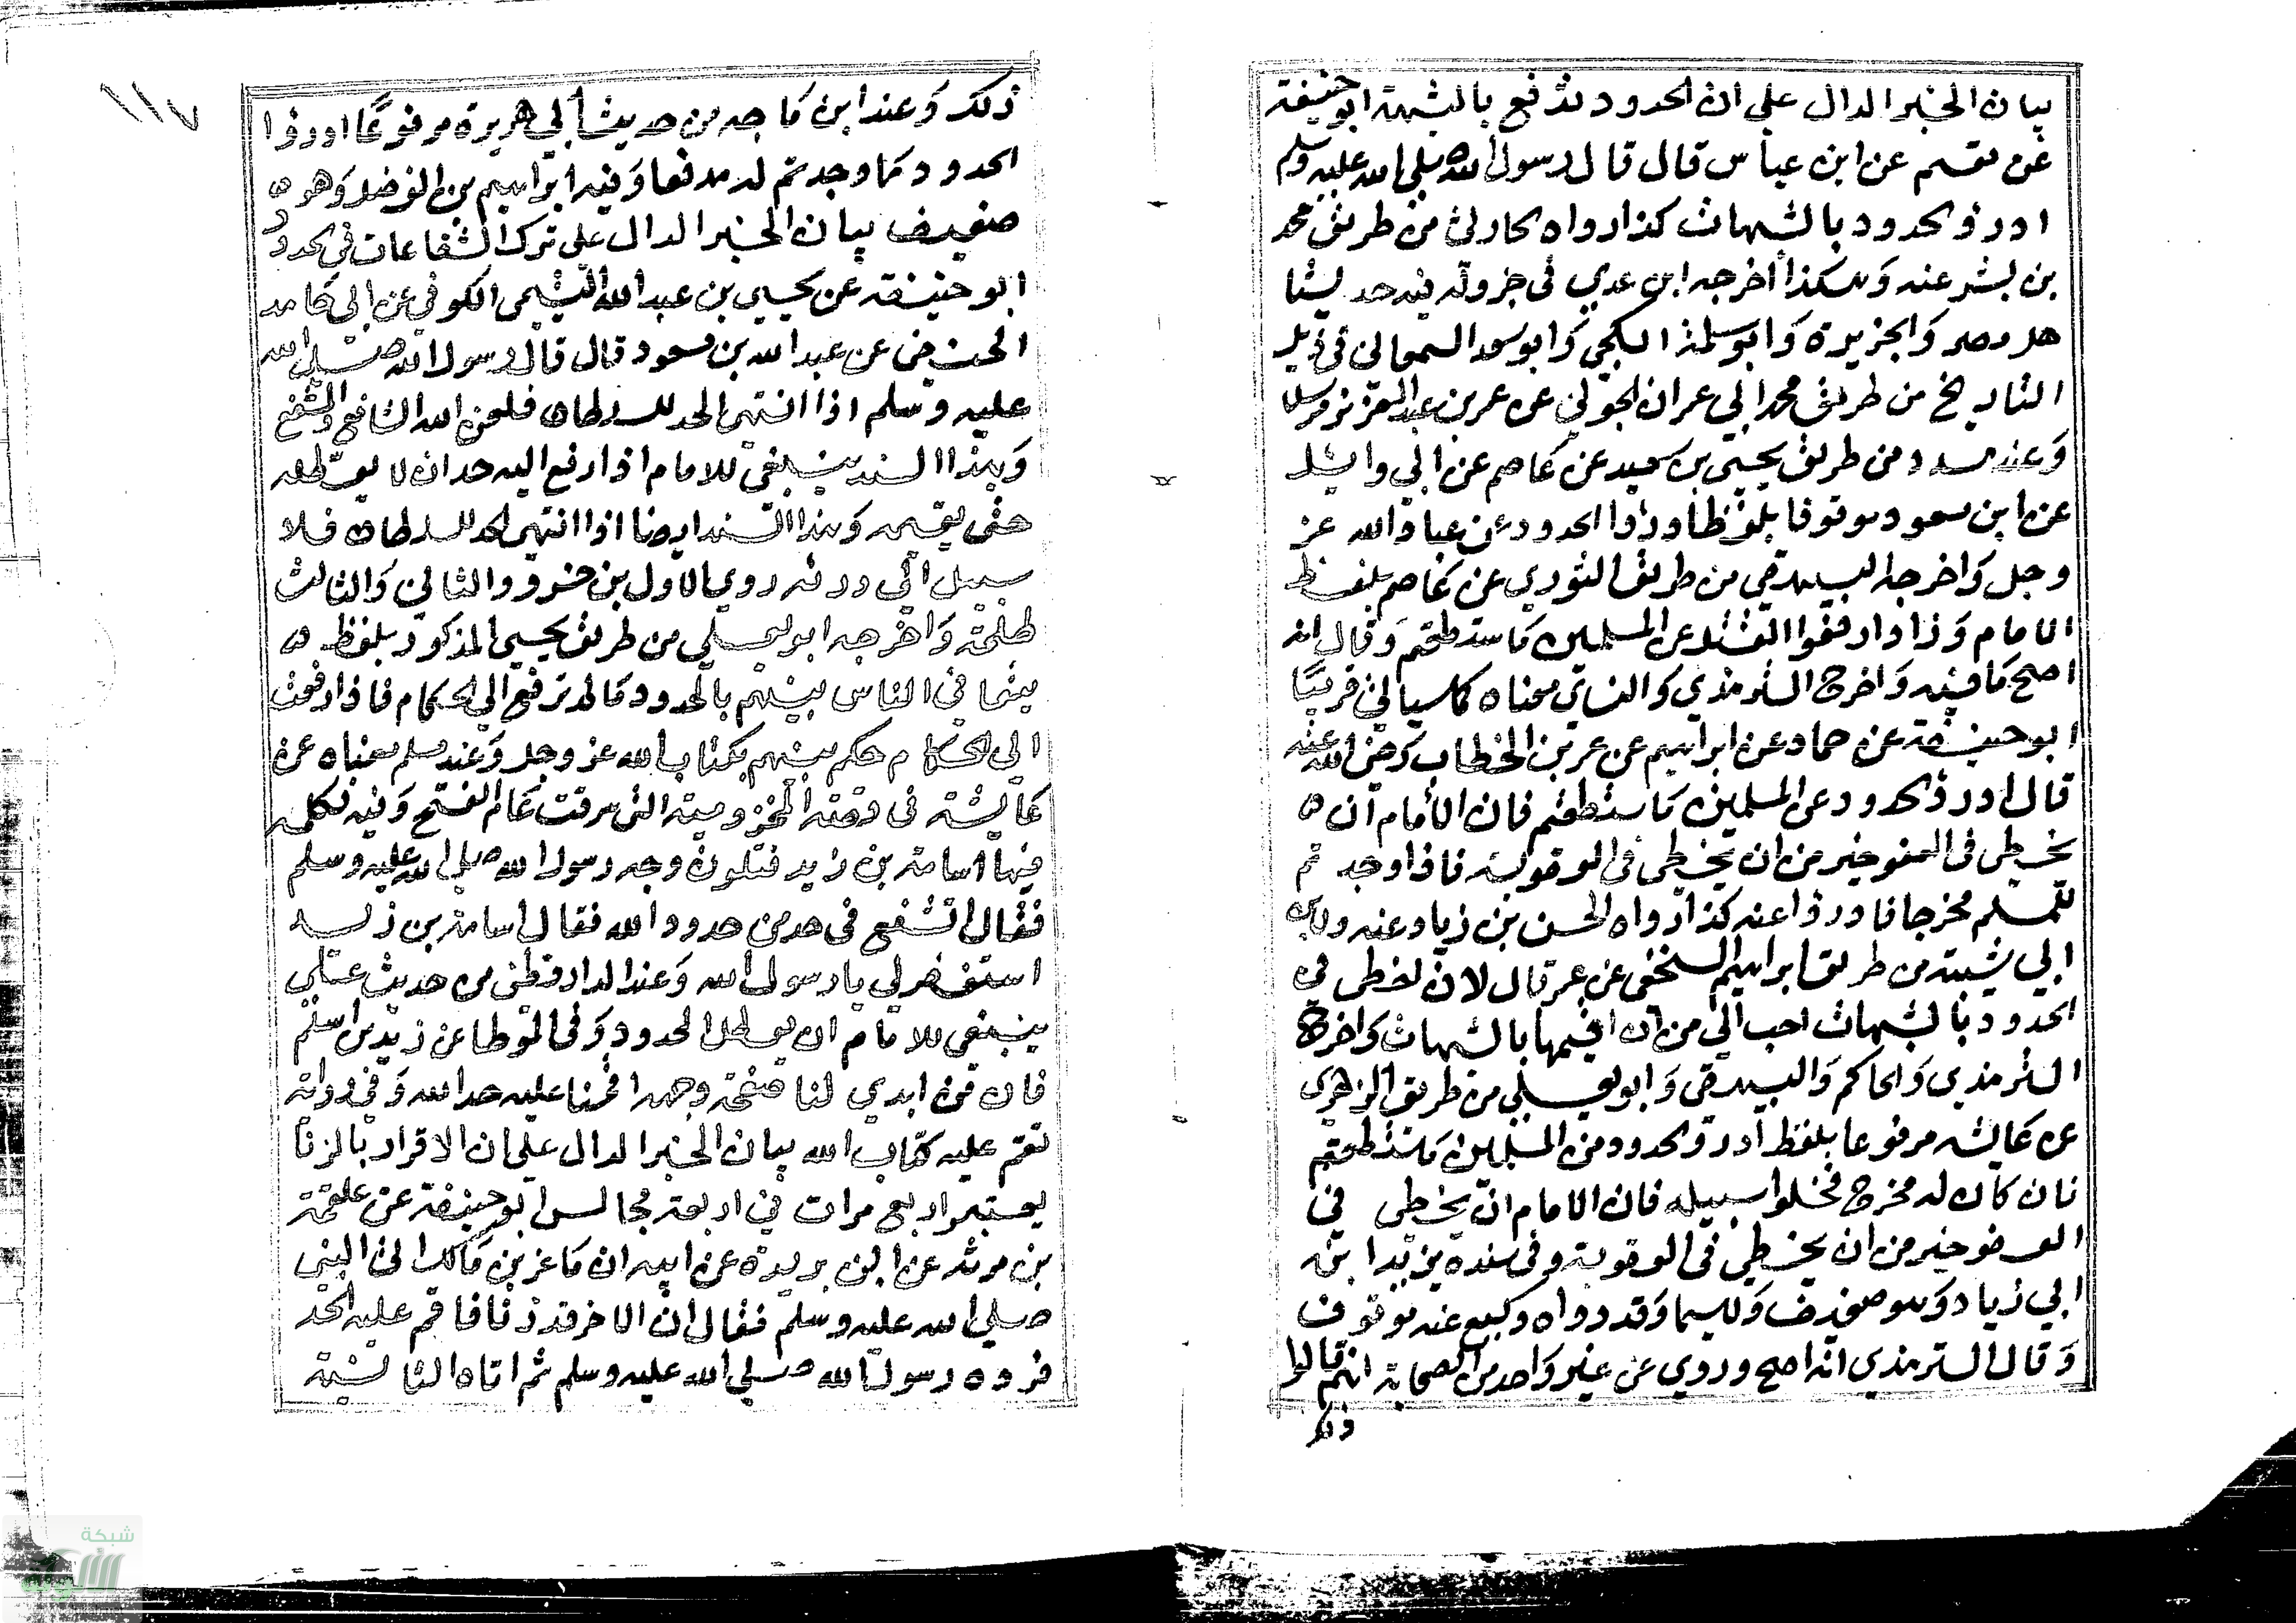 بيان الخبر الدال على ان الحدود تدفع بالشبهة ابو حنيفة
عن مقسم عن ابن عباس قال قال رسول الله صلى الله عليه وسلم
ادرؤ الحدود بالشبهات كذا رواه الحارثي من طريق محمد
بن بشر عنه وهكذا أخرجه ابن عدي في جزوله فيه حديث
اهل مصر والجزيرة وابو مسلم الكجي وابو سعد السمعاني في ذيل
التاريخ من طريق محمد ابي عمران الجوني عن عمر بن عبد العزيز مرسلا
وعند مسدد من طريق يحيى بن سعيد عن عاصم عن ابي وائل
عن ابن مسعود موقوفا بلفظ ادرؤا الحدود عن عباد الله عز
وجل واخرجه البيهقي من طريق الثوري عن عاصم بلفظ
الامام وزاد ادفعوا القتل عن المسلمين ما استطعتم وقال انه
اصح ما فيه واخرج الترمذي والنسائي معناه كما سياتي قريبا
ابو حنيفة عن حماد عن ابراهيم عن عمر بن الخطاب رضي الله عنه
قال ادرؤ الحدود عن المسلمين ما استطعتم فان الأمام ان
يخطى فى العفو خير من ان يخطى فى العقوبة فاذا وجدتم
للمسلم مخرجا فادرؤا عنه كذا رواه الحسن بن زياد عنه ولابن
ابي شيبة من طريق ابراهيم النخعي عن عمر قال لان اخطى في
الحدود بالشبهات احب الي من ان اقيمها بالشبهات واخرج
الترمذي والحاكم والبيهقي وابو يعلى من طريق الزهري
عن عائشه مرفوعا بلفظ ادرؤ الحدود من المسلمين ما استطعتم
فان كان له مخرج فخلوا سبيله فان الامام ان يخطى في
العفو خير من ان يخطي فى العقوبة وفى سنده يزيد ابن
ابي زياد وهو ضعيف ولاسيما وقد رواه وكيع عنه موقوف
وقال الترمذي انه اصح وروي عن غير واحد من الصحابة انهم قالوا
ذلك
١١٧
ذلك وعند ابن ماجه من حديث أبي هريرة مرفوعا ادرؤا
الحدود ما وجدتم له مدفعا وفيه ابراهيم بن الفضل وهو
ضعيف بيان الخبر الدال على ترك الشفاعات في الحدود
ابو حنيفة عن يحيى بن عبد الله التيمي الكوفي عن ابي ماجد
الحنفي عن عبد الله بن مسعود قال قال رسول الله صلى الله
عليه وسلم اذا انتهى الحد للسلطان فلعن الله الشافع والمشفع
وبهذا السند ينبغي للامام اذا رفع اليه حد ان لا يعطله
حتى يقيمه وبهذا السند ايضا اذا انتهى الحد للسلطان فلا
سبيل الي درئه روي الاول بن خسرو والثاني والثالث
طلحة واخرجه ابو يعلي من طريق يحيى المذكور بلفظ
يشفا في الناس بينهم بالحدود ما لم ترفع الي الحكام فاذا رفعت
الي الحكام حكم بينهم بكتاب الله عز وجل وعند مسلم معناه عن
عايشة فى قصة المخزومية التي سرقت عام الفتح وفيه فكلمه
فيها اسامة بن زيد فتلون وجه رسول الله صلى الله عليه وسلم
فقال اتشفع فى حد من حدود الله فقال أسامة بن زيد
استغفر لي يا رسول الله وعند الدارقطني من حديث علي
ينبغى للامام ان يعطل الحدود وفى الموطا عن زيد بن اسلم
فان من ابدي لنا صفحة وجهه اقمنا عليه حد الله وفي رواية
نقم عليه كتاب الله بيان الخبر الدال على ان الاقرار بالزنا
يعتبر اربع مرات في اربعة مجالس ابو حنيفة عن علقمة
بن مرثد عن ابن بريدة عن ابيه ان ماعز بن مالك اتى النبي
صلي الله عليه وسلم فقال ان الاخر قد زنا فاقم عليه الحد
فرده رسول الله صلي الله عليه وسلم ثم اتاه الثانية
شبكة
الألوكة